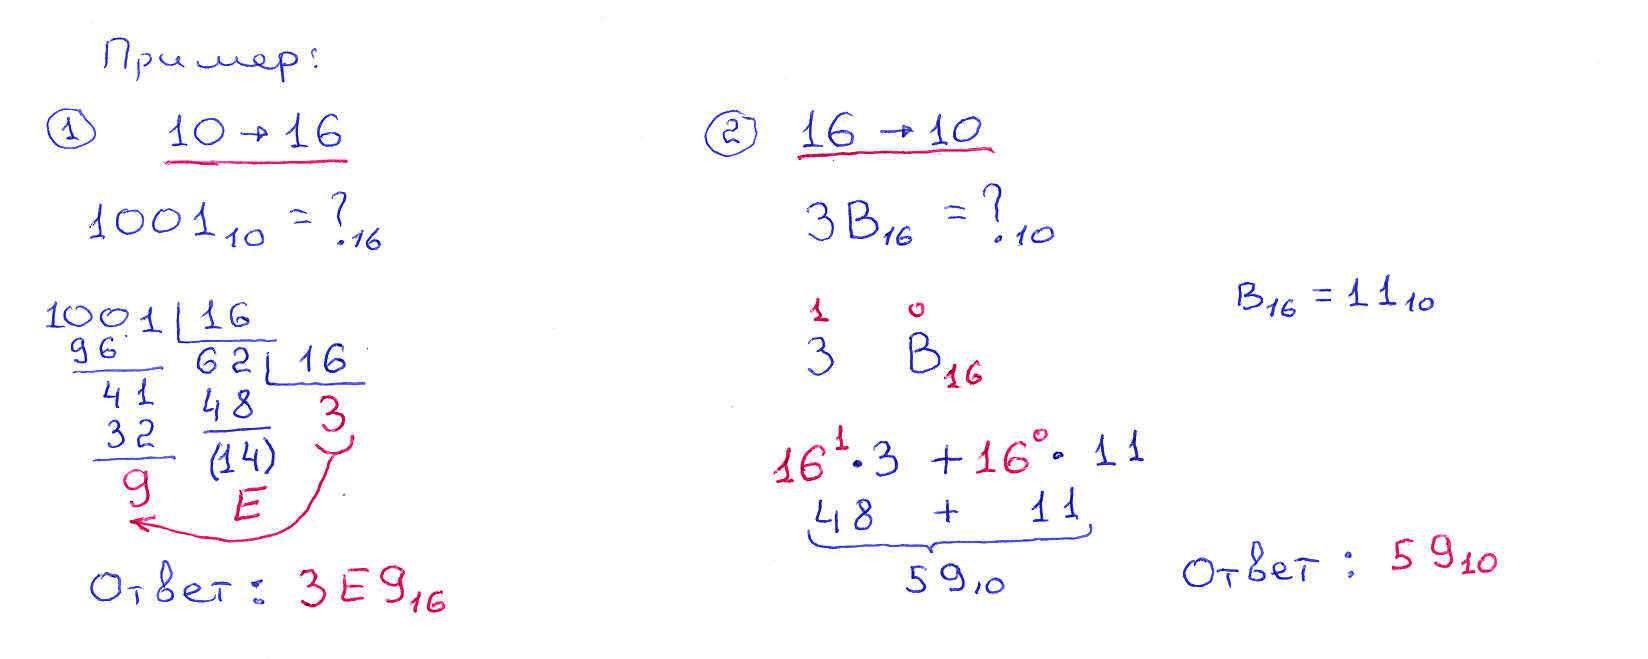 Пример:
① 10 → 16
1001₁₀ = ?₁₆
1001 | 16
96 62 | 16
41 48 3
32 (14)
9 E
Ответ: 3E9₁₆
② 16 → 10
3B₁₆ = ?₁₀
B₁₆ = 11₁₀
1 0
3 B₁₆
16¹·3 + 16⁰·11
48 + 11
59₁₀
Ответ: 59₁₀